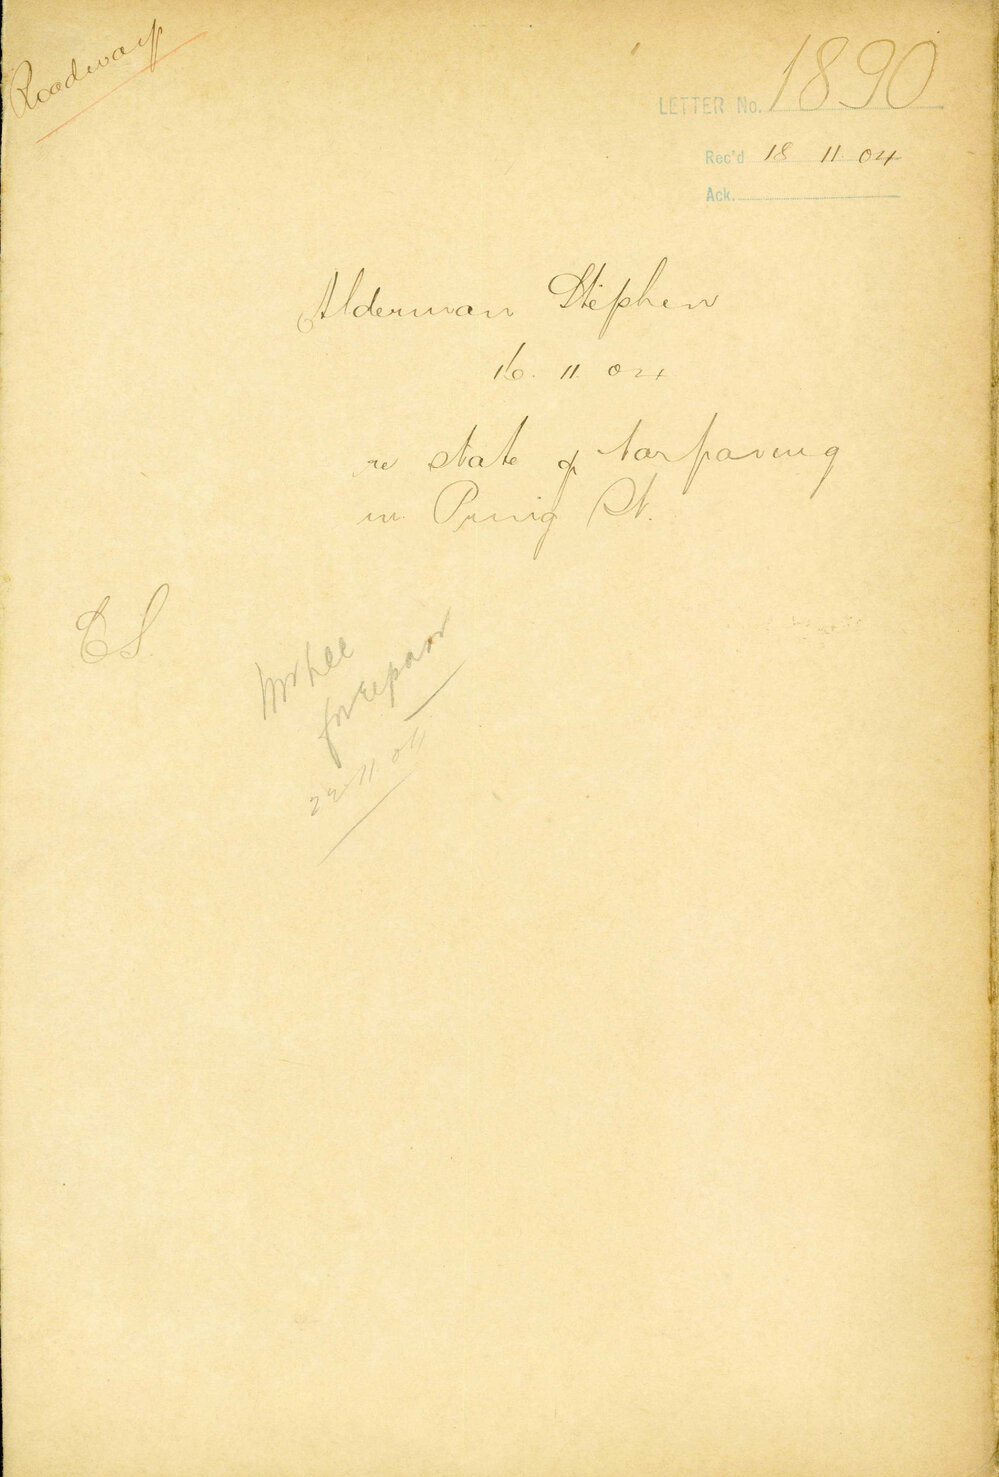 Roadways
LETTER No. 1890
Rec'd 18 11 04
Ack.
Alderman Stephen
16. 11. 04
re state of tarpaving
in St.
ES
Mr Lee
for repair
22.11.04